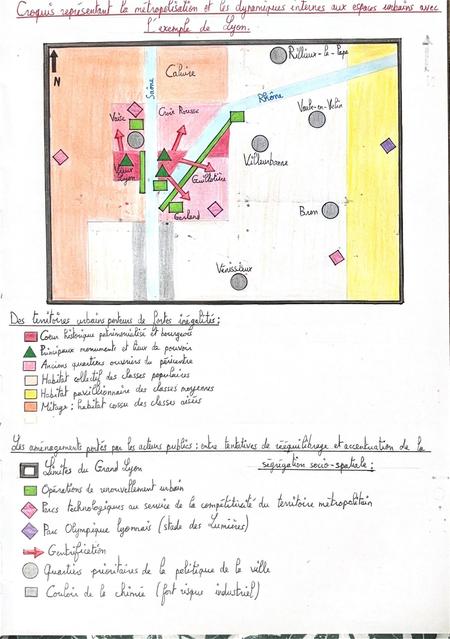 Croquis représentant la métropolisation et les dynamiques internes aux espaces urbains avec
l'exemple de Lyon.
N
Saône
Caluire
Rillieux-la-Pape
Rhône
Vaise
Croix Rousse
Vaulx-en-Velin
Villeurbanne
Vieux
Lyon
Guillotière
Gerland
Bron
Vénissieux
Des territoires urbains porteurs de fortes inégalités :
Coeur historique patrimonialisé et bourgeois
Principaux monuments et lieux de pouvoir
Anciens quartiers ouvriers du péricentre
Habitat collectif des classes populaires
Habitat pavillionnaire des classes moyennes
Mitage : habitat cossu des classes aisées
Les aménagements portés par les acteurs publics : entre tentatives de rééquilibrage et accentuation de la
ségrégation socio-spatiale :
Limites du Grand Lyon
Opérations de renouvellement urbain
Parcs technologiques au service de la compétitivité du territoire métropolitain
Parc Olympique lyonnais (stade des Lumières)
Gentrification
Quartiers prioritaires de la politique de la ville
Couloir de la chimie (fort risque industriel)